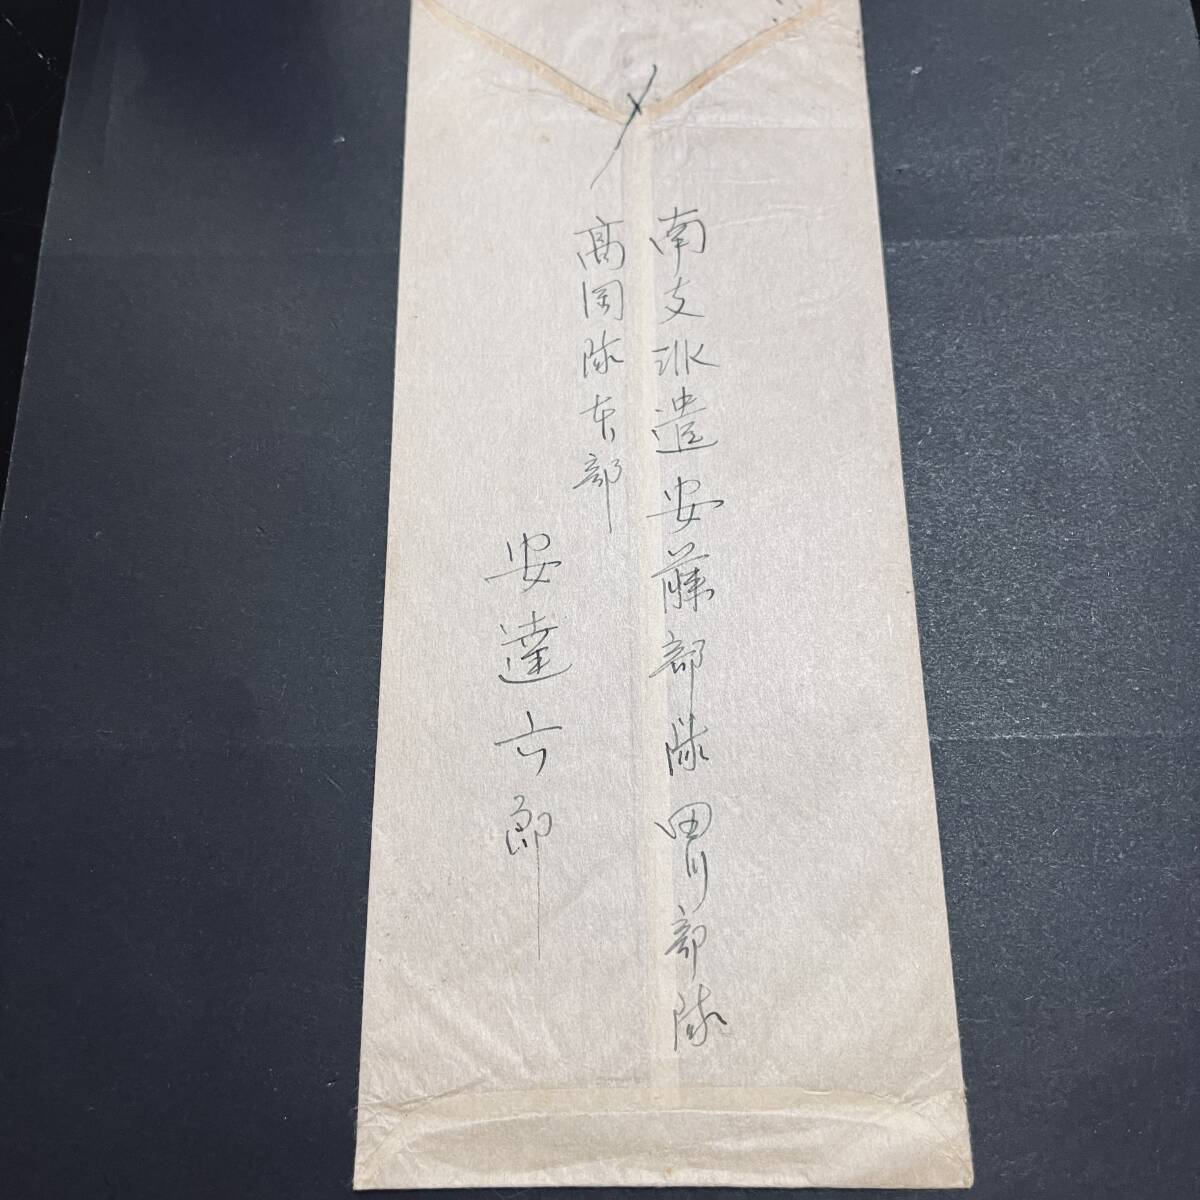 〆
南支派遣安藤部隊 田川部隊
高岡隊本部
安達六郎